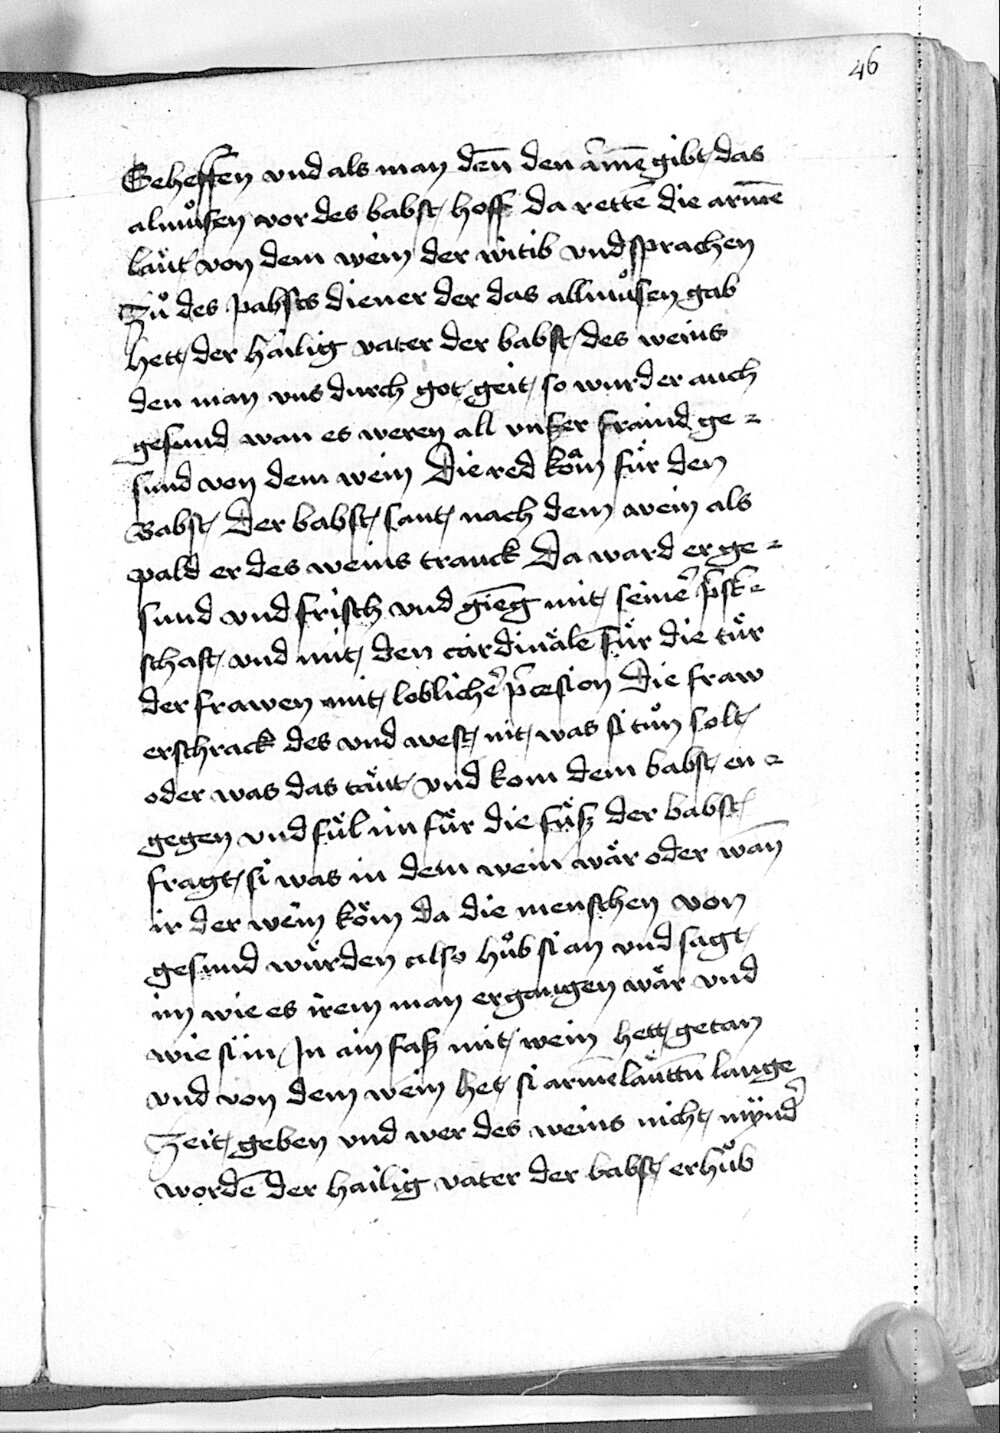 46
Gehessen vnd als man den̄ den armē gibt das
almůsen vor des babst hoff da rettē die armē
laüt von dem wein der witib vnd sprachen
Zů des pabsts diener der das allmůsen gab
hett der hailig vater der babst des weins
den man vns durch got geit so wurd er auch
gesund wan es weren all vnser fraind ge=
sund von dem wein Die red köm für den
Babst Der babst sant nach dem wein als
pald er des weins tranck Da ward er ge=
sund vnd frisch vnd gieng mit seiner̄ pst=
schaft vnd mit den cardinälē für die tür
der frawen mit loblicher̄ pcesion Die fraw
erschrack des vnd west nit was si tůn solt
oder was das täut vnd kom dem babst en=
gegen vnd fül im für die füsz der babst
fragt si was in dem wein wär oder wan̄
ir der wein köm da die menschen von
gesund würden also hůb si an vnd sagt
im wie es irem man ergangen wär vnd
wie si in In ain fasz mit wein hett getan
vnd von dem wein het si armē laüttn̄ lange
Zeit geben vnd wer des weins nicht mynd̄
wordē der hailig vater der babst erhůb